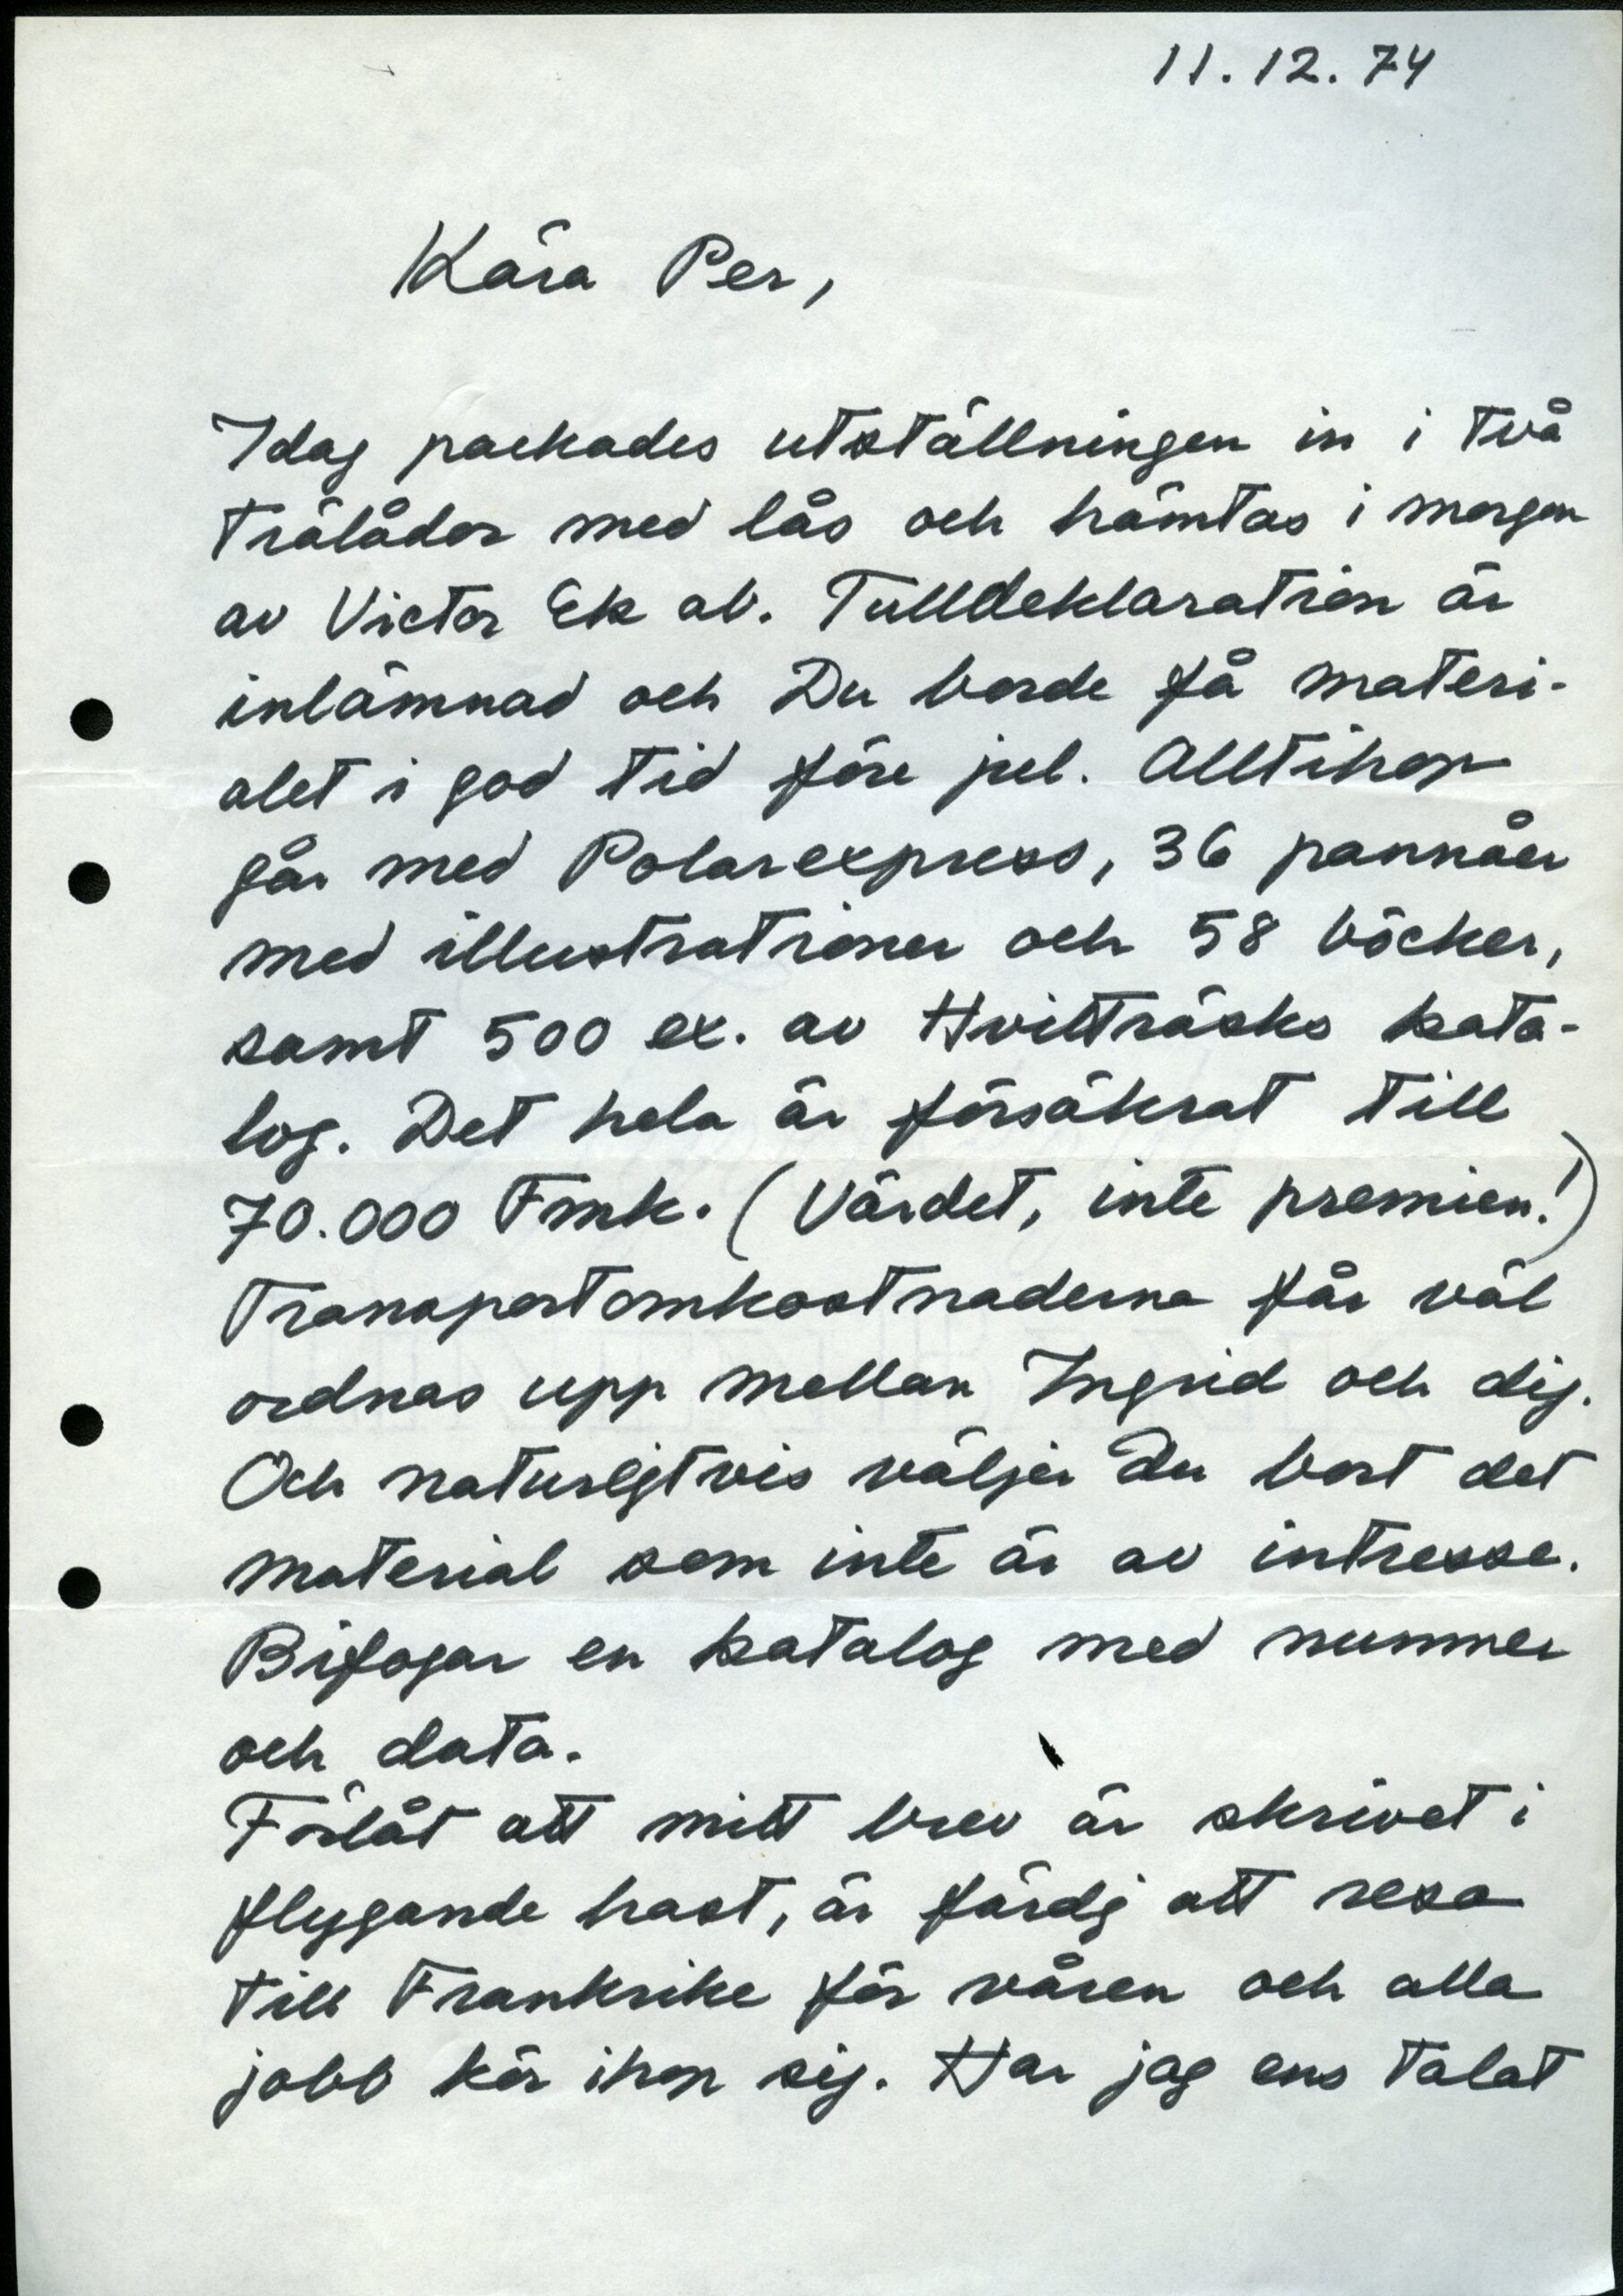 11.12.74
Kära Per,
Idag packades utställningen in i två
trälådor med lås och hämtas i morgon
av Victor Ek ab. Tulldeklaration är
inlämnad och Du borde få materi-
alet i god tid före jul. Alltihop
går med Polarexpress, 36 pannåer
med illustrationer och 58 böcker,
samt 500 ex. av Hvitträsks kata-
log. Det hela är försäkrat till
70.000 Fmk. (Värdet, inte premien!)
Transportomkostnaderna får väl
ordnas upp mellan Ingrid och dig.
Och naturligtvis väljer Du bort det
material som inte är av intresse.
Bifogar en katalog med nummer
och data.
Förlåt att mitt brev är skrivet i
flygande hast, är färdig att resa
till Frankrike för våren och alla
jobb kör ihop sig. Har jag ens talat